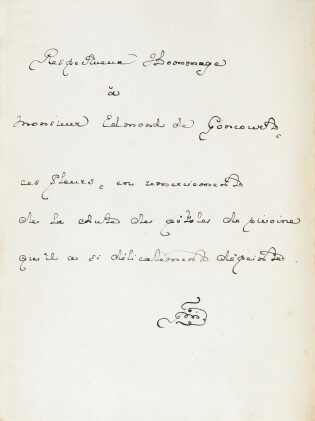 Respectueux Hommage
à
Monsieur Edmond de Goncourt,
ces fleurs, en remerciement
de la chute des pétales de pivoine
qu'il a si délicatement dépeinte